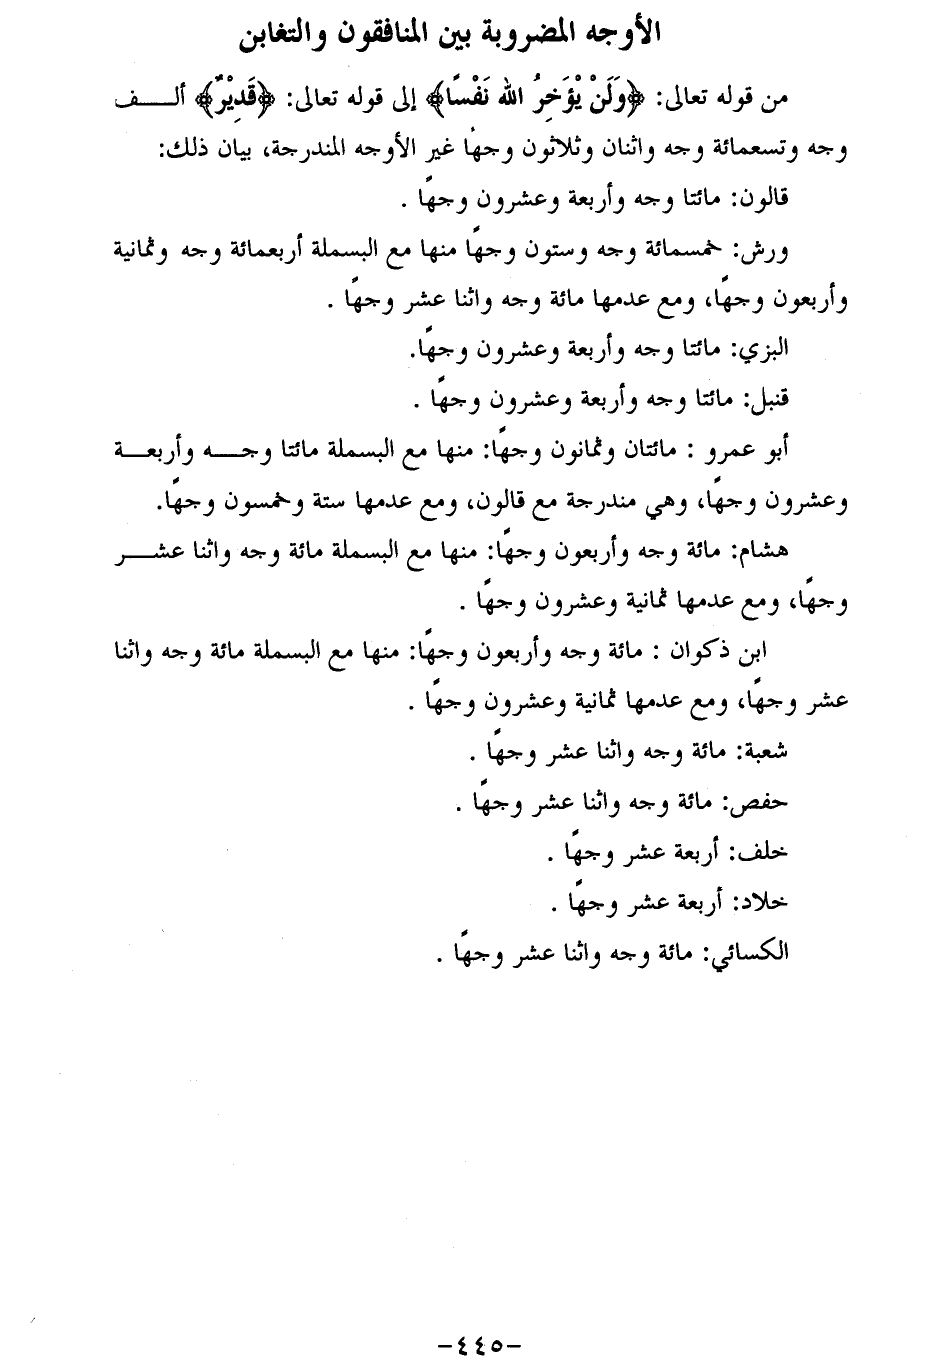 الأوجه المضروبة بين المنافقون والتغابن
من قوله تعالى: ﴿وَلَنْ يُؤَخِرُ الله نَفْسًا﴾ إلى قوله تعالى: ﴿قَدِيْرٌ﴾ ألـــف
وجه وتسعمائة وجه واثنان وثلاثون وجهًا غير الأوجه المندرجة، بيان ذلك:
قالون: مائتا وجه وأربعة وعشرون وجهًا .
ورش: خمسمائة وجه وستون وجهًا منها مع البسملة أربعمائة وجه وثمانية
وأربعون وجهًا، ومع عدمها مائة وجه واثنا عشر وجهًا .
البزي: مائتا وجه وأربعة وعشرون وجهًا.
قنبل: مائتا وجه وأربعة وعشرون وجهًا .
أبو عمرو : مائتان وثمانون وجهًا: منها مع البسملة مائتا وجـــه وأربعـــة
وعشرون وجهًا، وهي مندرجة مع قالون، ومع عدمها ستة وخمسون وجهًا.
هشام: مائة وجه وأربعون وجهًا: منها مع البسملة مائة وجه واثنا عشـــر
وجهًا، ومع عدمها ثمانية وعشرون وجهًا .
ابن ذكوان : مائة وجه وأربعون وجهًا: منها مع البسملة مائة وجه واثنا
عشر وجهًا، ومع عدمها ثمانية وعشرون وجهًا .
شعبة: مائة وجه واثنا عشر وجهًا .
حفص: مائة وجه واثنا عشر وجهًا .
خلف: أربعة عشر وجهًا .
خلاد: أربعة عشر وجهًا .
الكسائي: مائة وجه واثنا عشر وجهًا .
-٤٤٥-